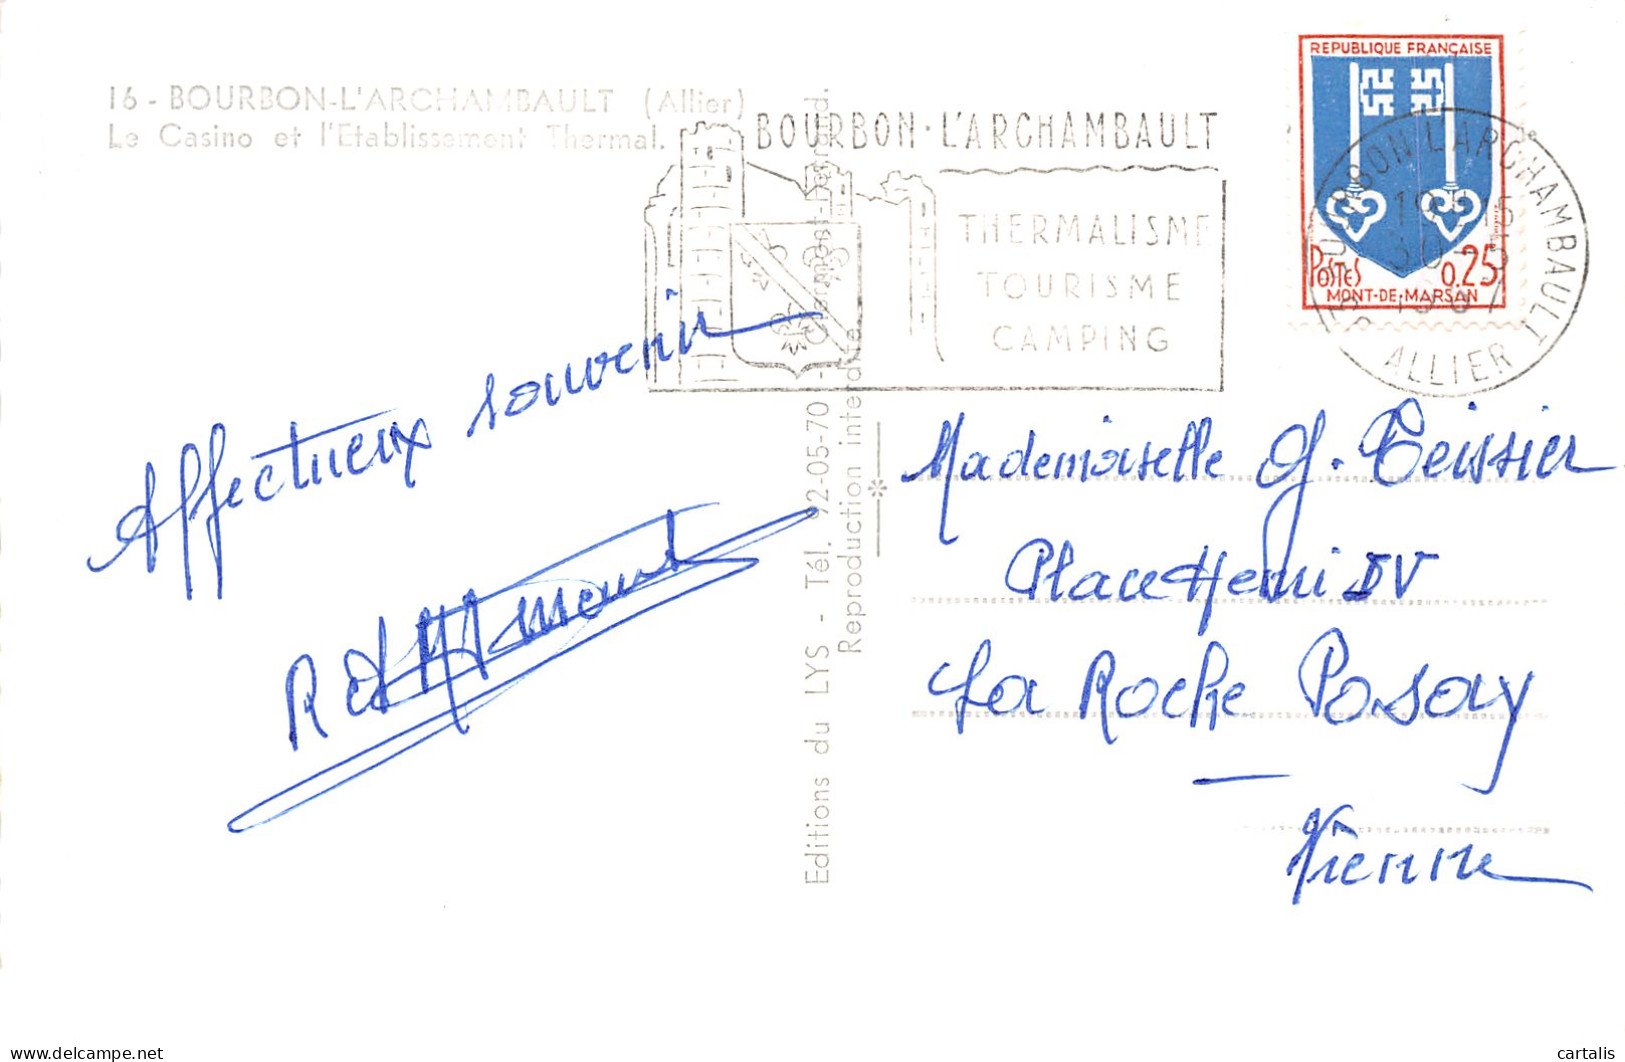 16 - BOURBON-L'ARCHAMBAULT (Allier)
Le Casino et l'Etablissement Thermal.
BOURBON·L'ARCHAMBAULT
THERMALISME
TOURISME
CAMPING
REPUBLIQUE FRANÇAISE
POSTES 0,25
MONT-DE-MARSAN
BOURBON L'ARCHAMBAULT
ALLIER
Affectueux souvenir
Editions du LYS - Tél. 92-05-70 - Clermont-Ferrand.
Reproduction interdite
Mademoiselle G. Teissier
Place Henri IV
La Roche Posay
Vienne
delcampe.net
cartalis